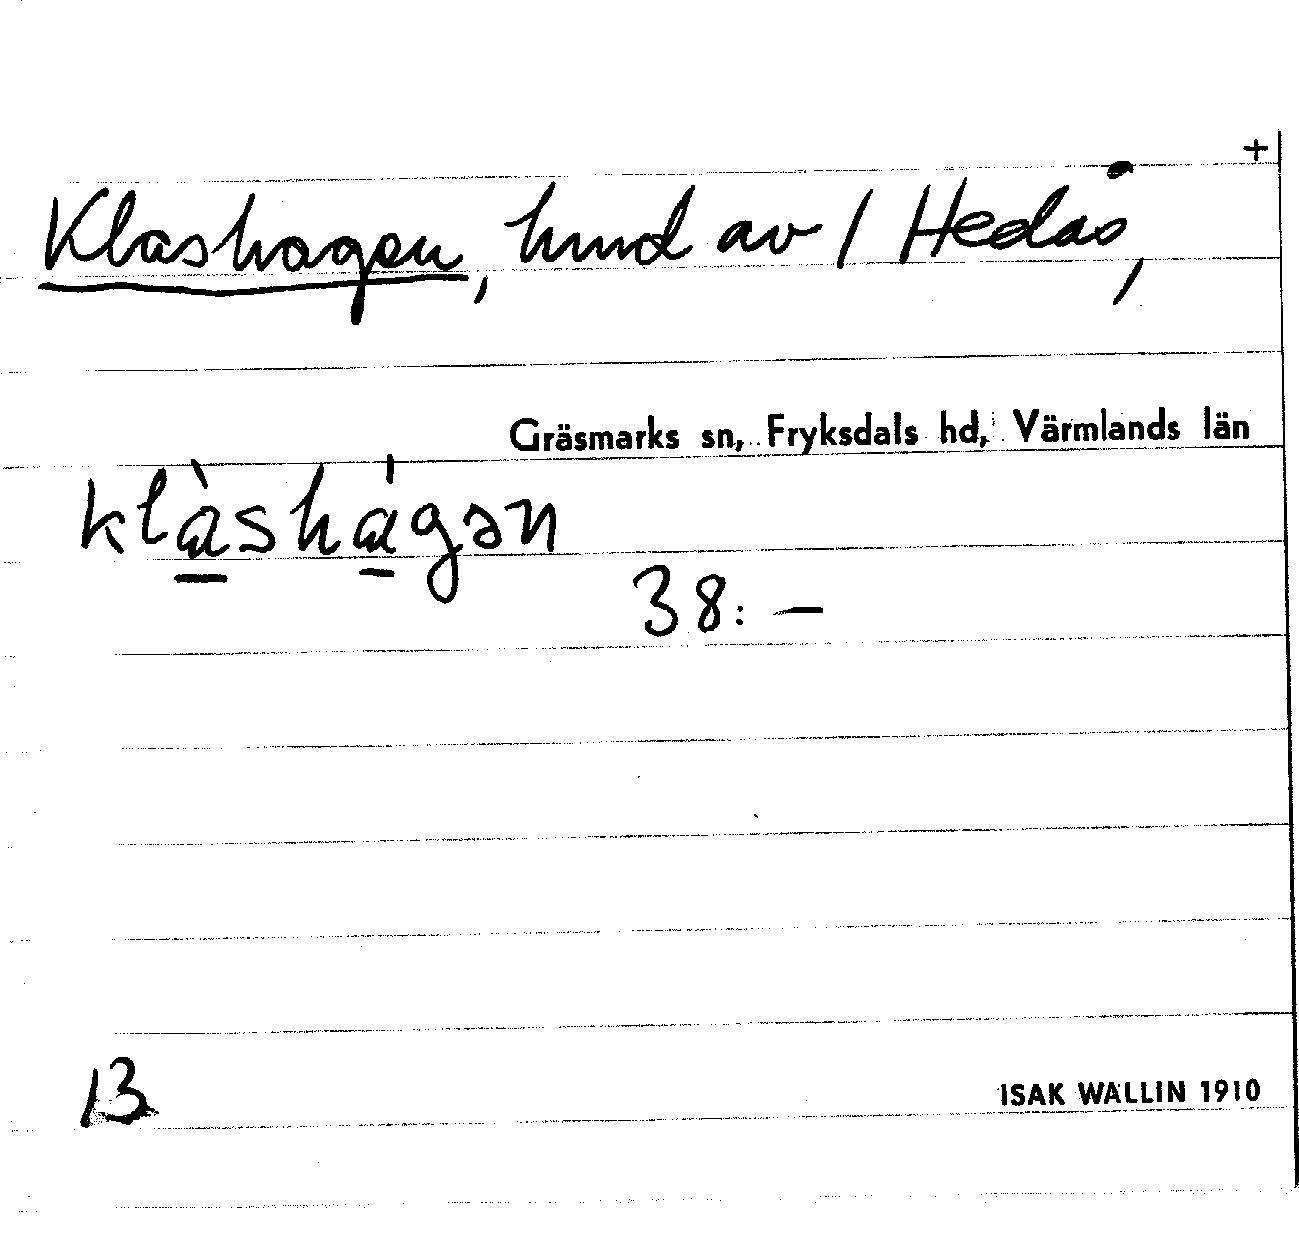 +
Klashagen, hmd av / Hedås,
Gräsmarks sn, Fryksdals hd, Värmlands län
klàshágən
38: —
13
ISAK WALLIN 1910